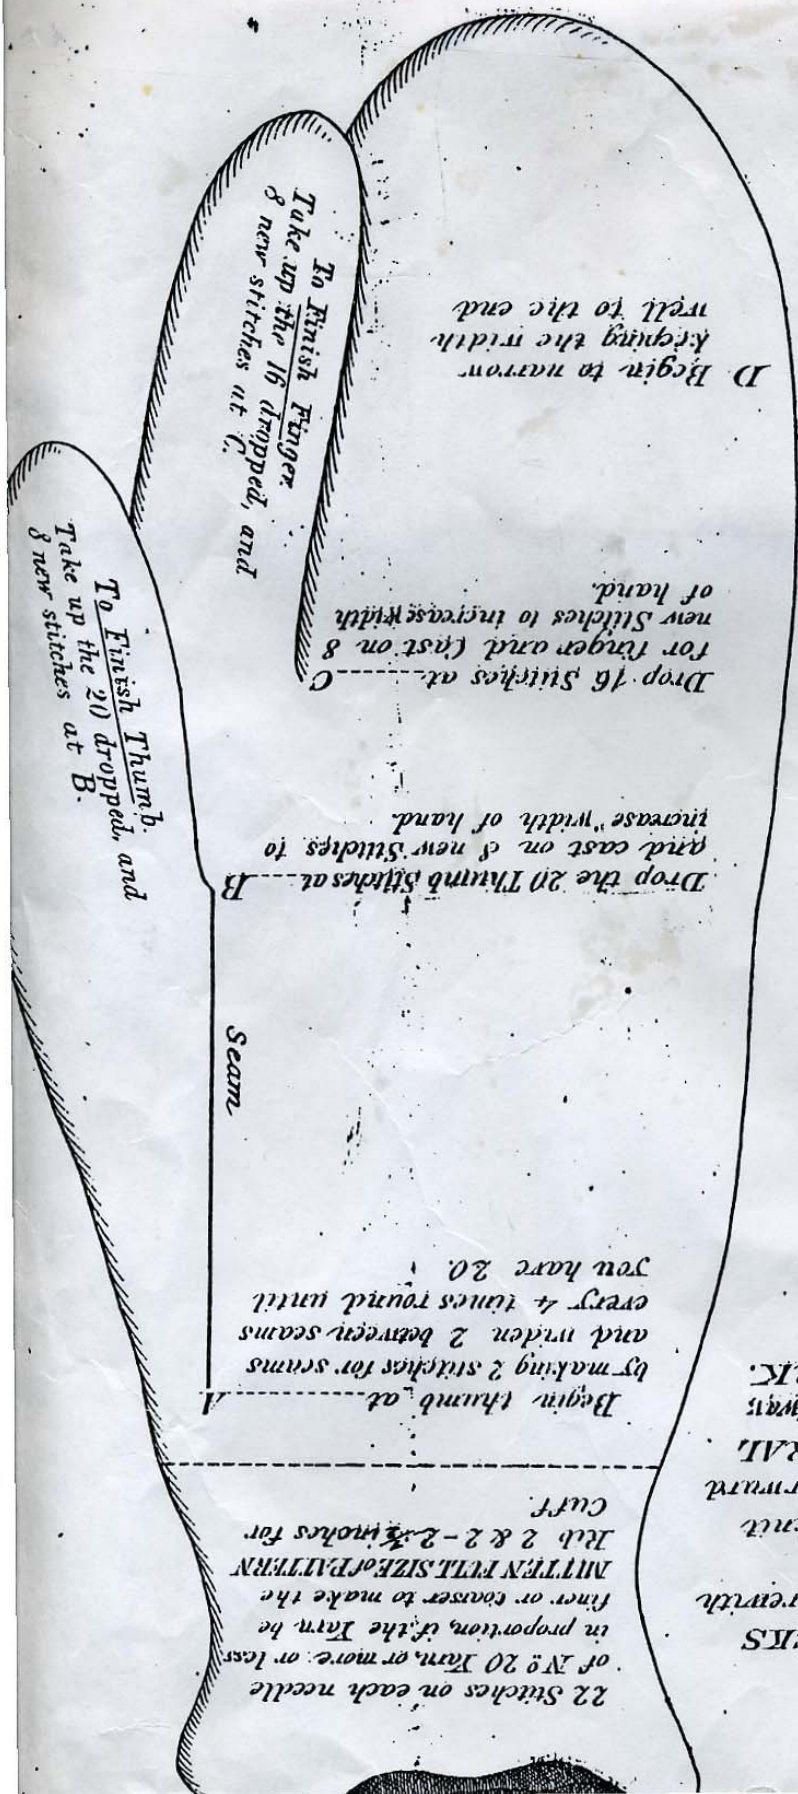 22 Stitches on each needle
of No 20 Yarn, or more or less
in proportion, if the Yarn be
finer or coarser to make the
MITTEN FULL SIZE of PATTERN
Rib 2 & 2 - 2 ½ inches for
Cuff.
Begin thumb at A
by making 2 stitches for seams
and widen 2 between seams
every 4 times round until
you have 20.
Seam
Drop the 20 Thumb Stitches at B
and cast on 8 new Stitches to
increase width of hand.
Drop 16 Stitches at C
for finger and Cast on 8
new Stitches to increase width
of hand.
D Begin to narrow
keeping the width
well to the end
To Finish Finger.
Take up the 16 dropped, and
8 new stitches at C.
To Finish Thumb.
Take up the 20 dropped, and
8 new stitches at B.